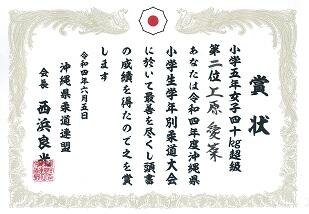 賞状
小学五年女子四十kg超級
第二位上原愛菜
あなたは令和四年度沖縄県
小学生学年別柔道大会
に於いて最善を尽くし頭書
の成績を得たので之を賞
します
令和四年六月五日
沖縄県柔道連盟
会長 西浜良光